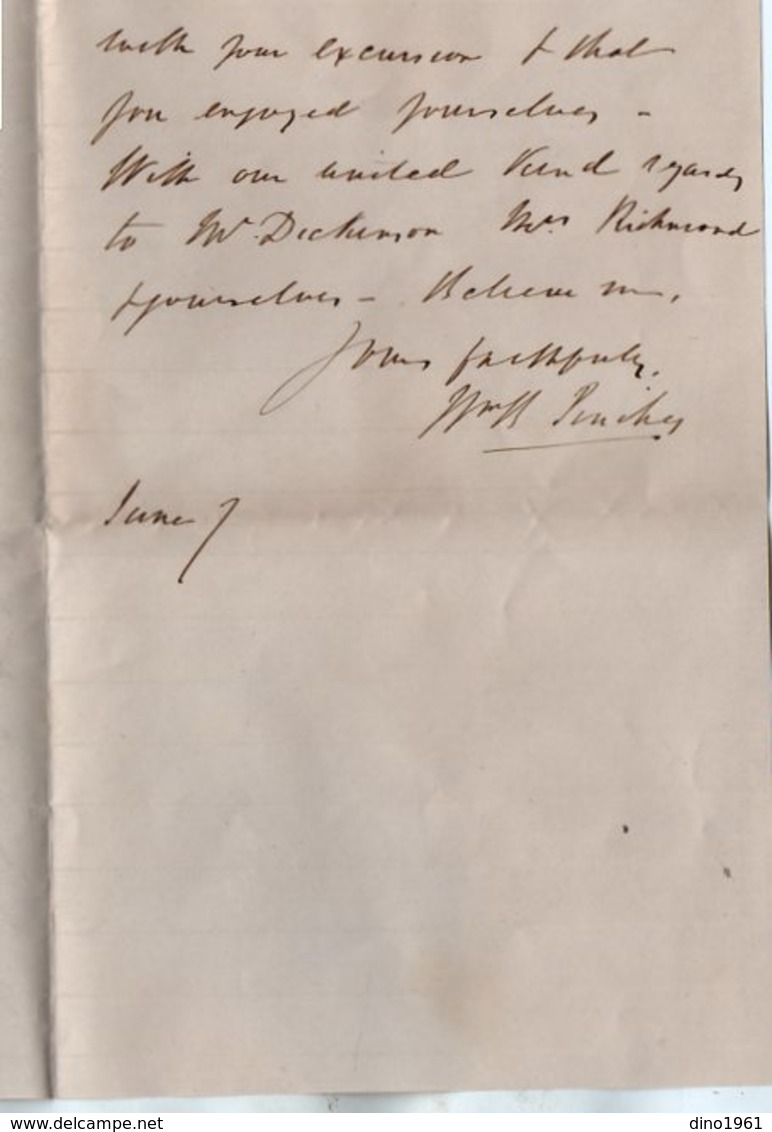 with your excursion & that
you enjoyed yourselves -
With our united kind regards
to Mr. Dickinson Mrs Richmond
& yourselves - Believe me,
Yours faithfully,
Wm H
June 7
delcampe.net
dino1961